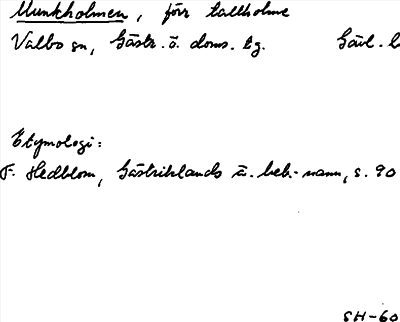 Munkholmen, förr tallholme
Valbo sn, Gästr. ö. doms. tg. Gävl. l
Etymologi:
F. Hedblom, Gästriklands ä. beb.-namn, s. 90
SH-60